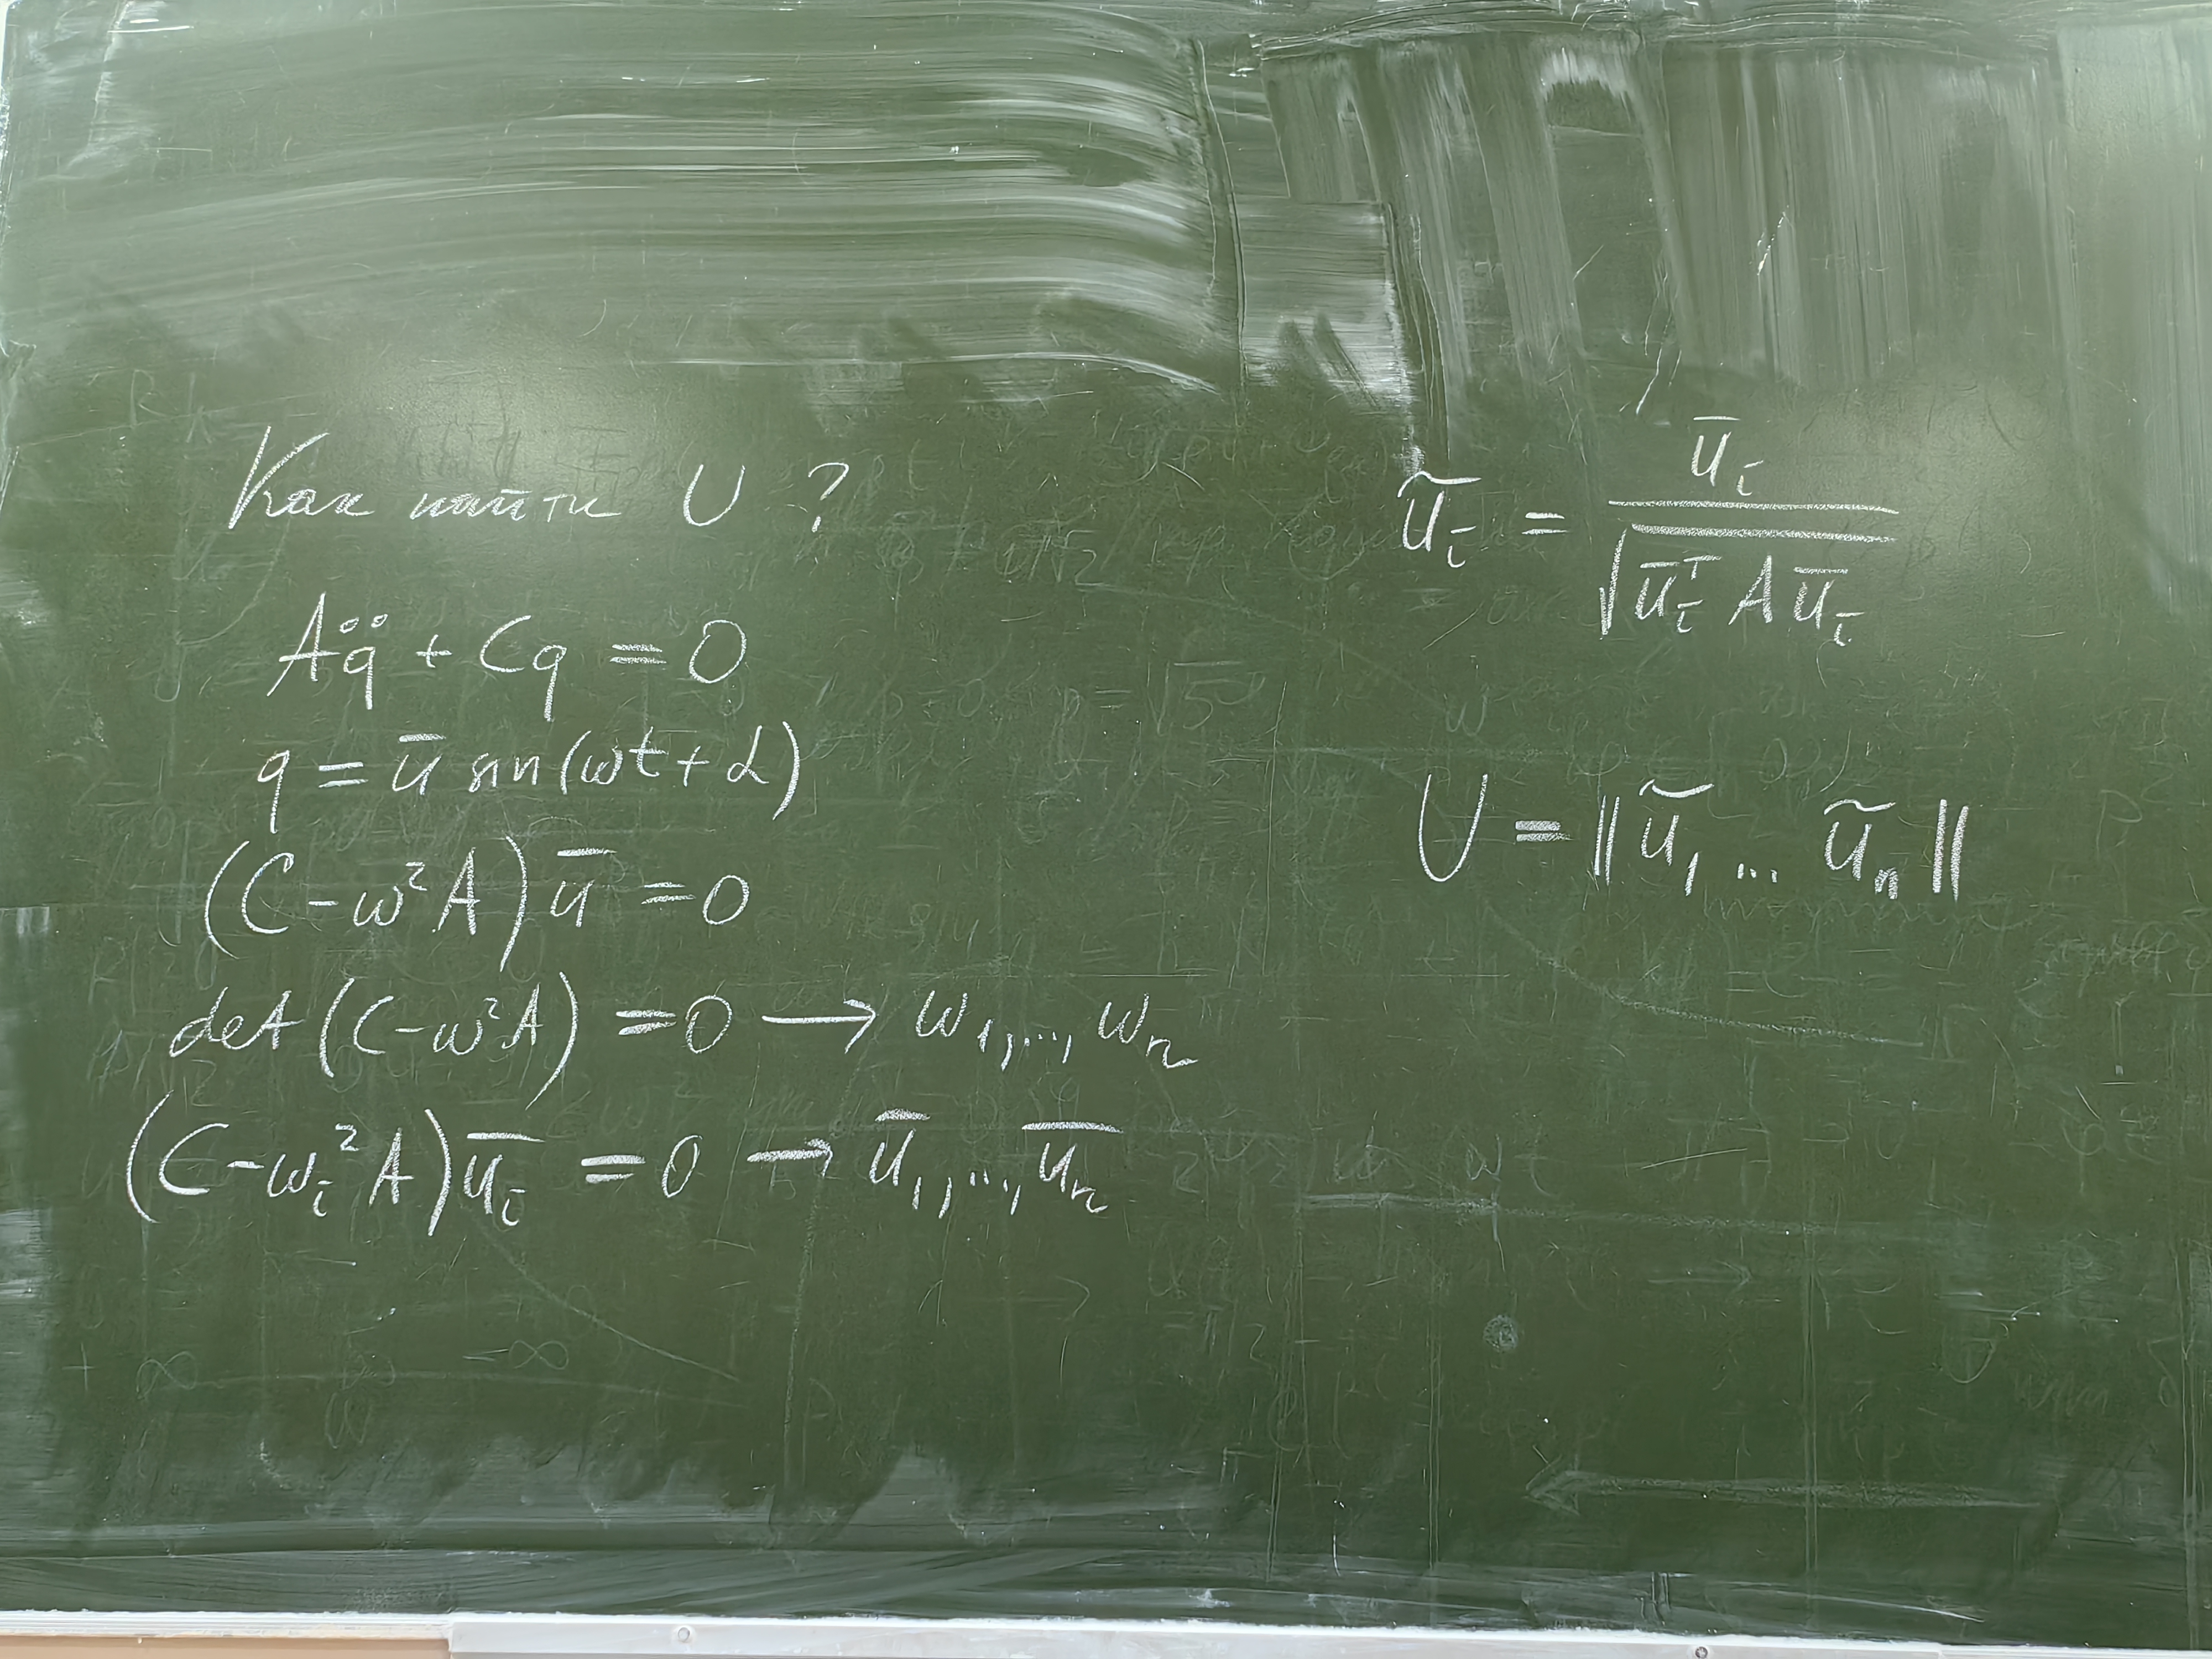 Как найти U ?
Aq̈ + Cq = 0
q = ū sin(ωt + α)
(C - ω²A) ū = 0
det (C - ω²A) = 0 → ω₁, ..., ωₙ
(C - ωᵢ²A) ūᵢ = 0 → ū₁, ..., ūₙ
ũᵢ = ūᵢ / √(ūᵢᵀ A ūᵢ)
U = || ũ₁ ... ũₙ ||